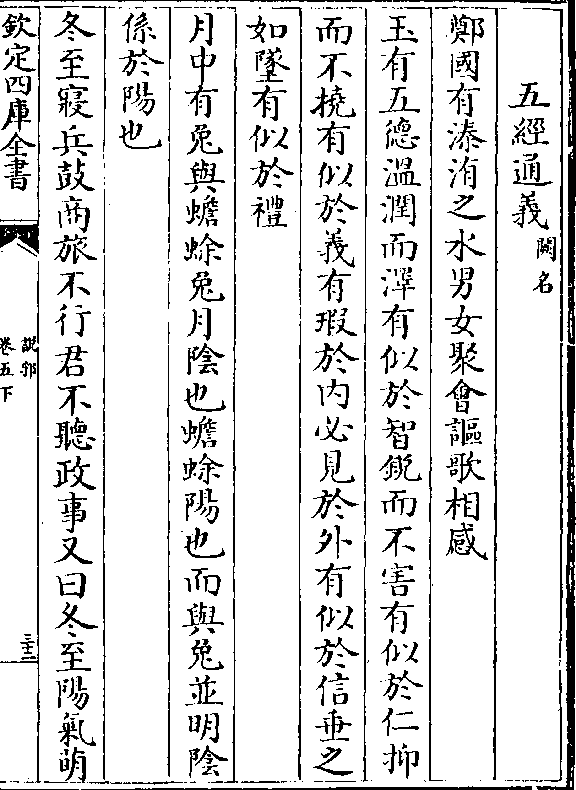 五經通義闕名
鄭國有溱洧之水男女聚會謳歌相感
玉有五德溫潤而澤有似於智銳而不害有似於仁抑
而不撓有似於義有瑕於内必見於外有似於信垂之
如墜有似於禮
月中有兔與蟾蜍兔月陰也蟾蜍陽也而與兔並明陰
係於陽也
冬至寢兵鼓商旅不行君不聽政事又曰冬至陽氣萌
欽定四庫全書
說郛
卷五下
三十二